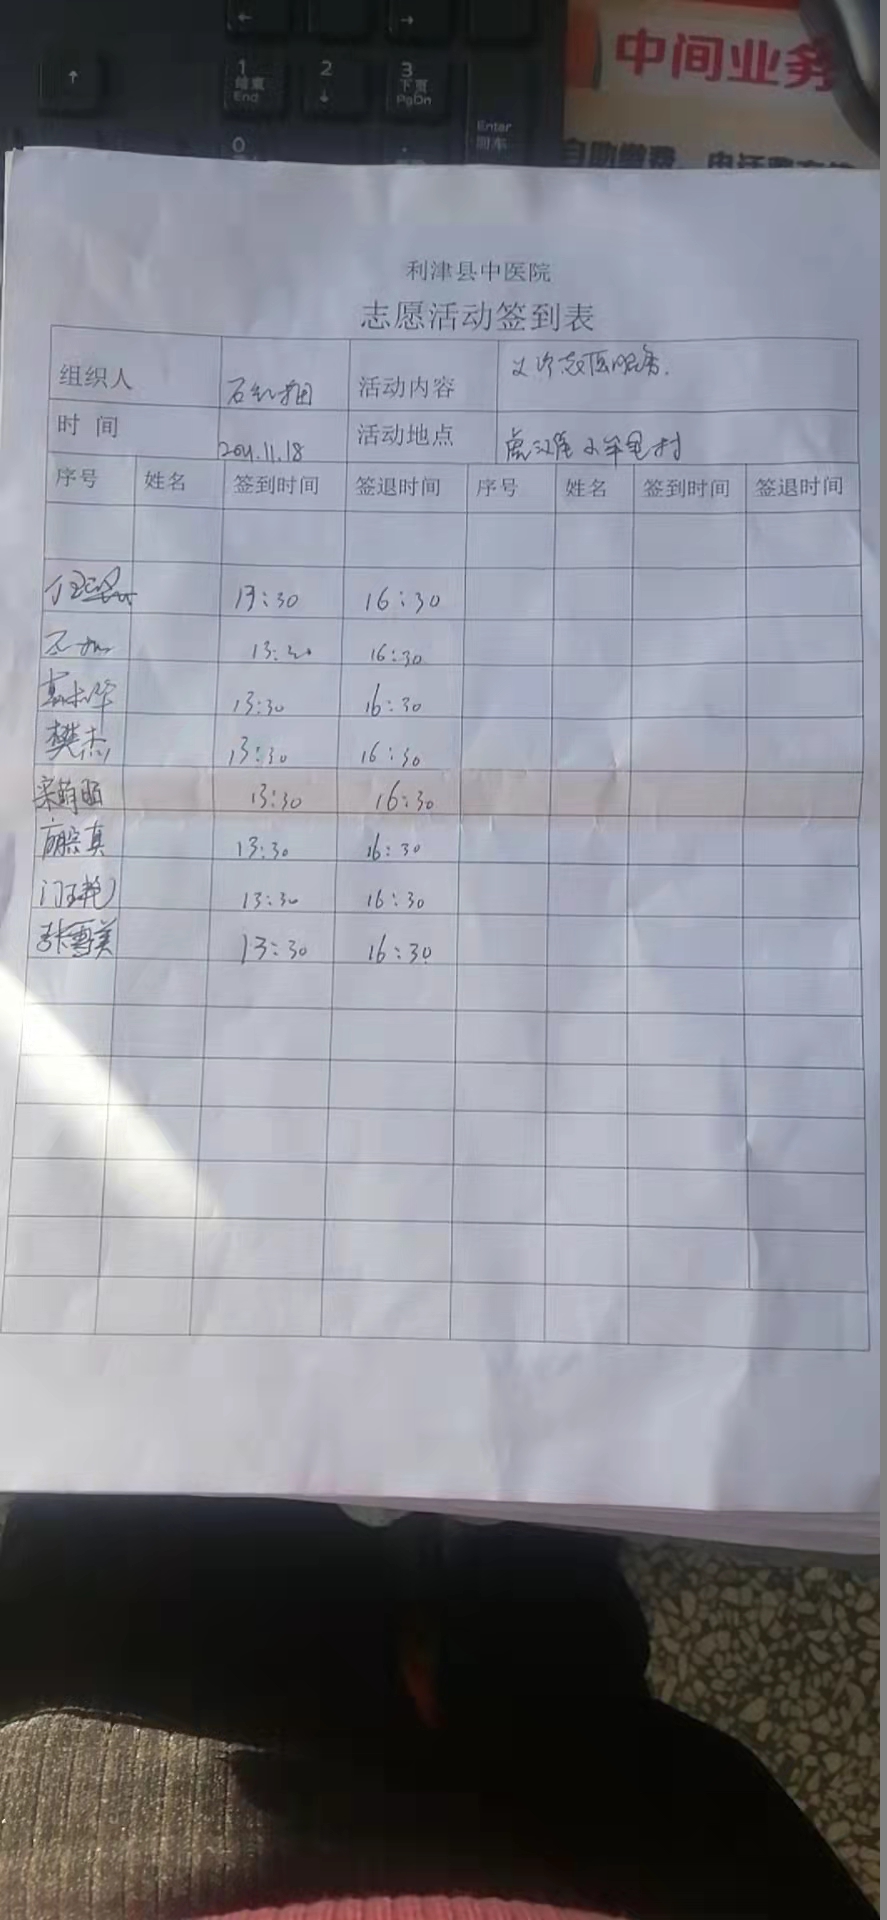 ←
→
↑
1
结束
End
2
↓
3
下页
PgDn
Enter
回车
0
.
中间业务
自助缴费、电话费
利津县中医院
志愿活动签到表
组织人 活动内容 义诊志愿服务.
时 间 11.18 活动地点 村
序号 姓名 签到时间 签退时间 序号 姓名 签到时间 签退时间
13:30 16:30
13:30 16:30
13:30 16:30
樊杰 13:30 16:30
宋萌 13:30 16:30
真 13:30 16:30
门 13:30 16:30
张雪美 13:30 16:30